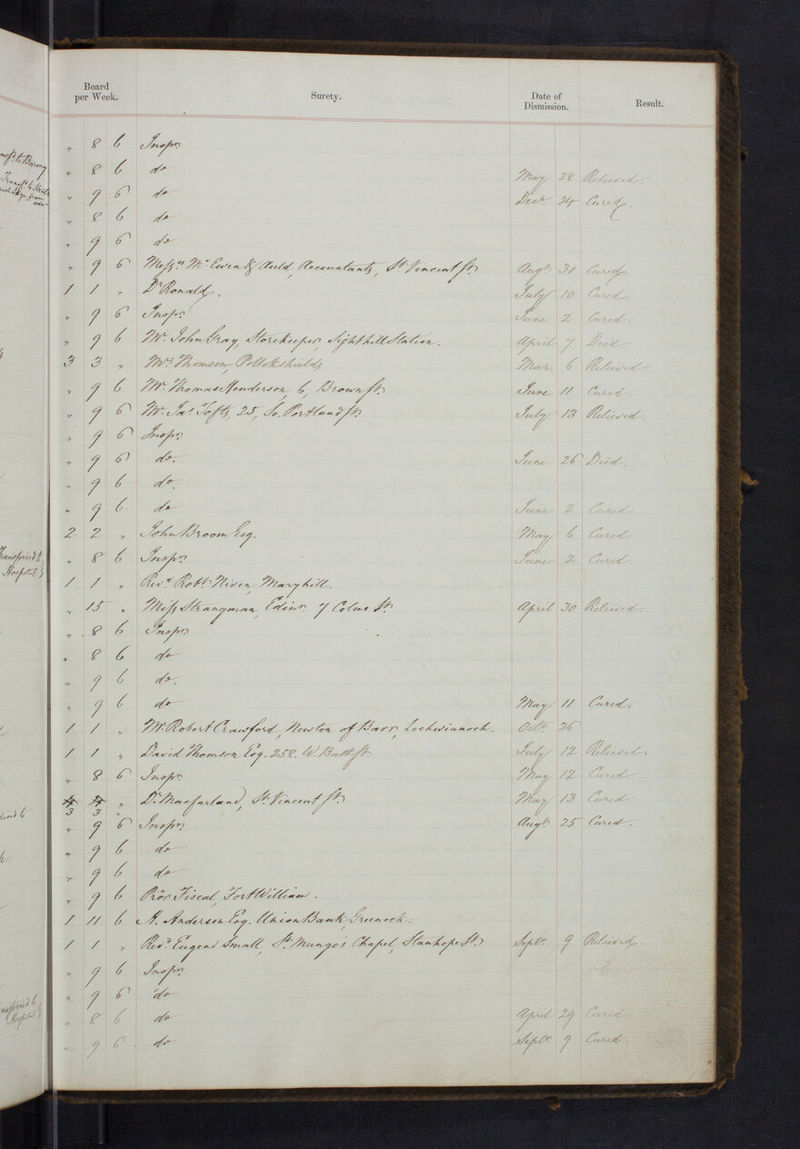 Board per Week. Surety. Date of Dismission. Result.
" 8 6 Inspr.
" 8 6 do May 28 Relieved
" 9 6 do Decr 24 Cured.
" 8 6 do
" 9 6 do
" 9 6 Messrs. McEwen & Auld, Accountants, St. Vincent St. Augt. 31 Cured
1 1 " Dr Ronald. July 10 Cured
" 9 6 Inspr. June 2 Cured.
" 9 6 Mr. John Gray, Storekeeper, Sighthill Station. April 7 Died
3 3 " Mrs Thomson, Pollokshields Mar. 6 Relieved
" 9 6 Mr Thomas Henderson 6, Brown St. June 11 Cured
" 9 6 Mr. Jas Tofts, 25, So. Portland St. July 13 Relieved.
" 9 6 Inspr.
" 9 6 do. June 26 Died.
" 9 6 do.
" 9 6 do June 2 Cured
2 2 " John Broom Esq. May 6 Cured
" 8 6 Inspr. June 2 Cured.
1 1 " Revd. Robt. Niven, Maryhill.
" 15 " Miss Strangman, Edinr. 7 Colme St. April 30 Relieved
" 8 6 Inspr.
" 8 6 do
" 9 6 do.
" 9 6 do May 11 Cured.
1 1 " Mr. Robert Crawford, Newton of Barr, Lochwinnoch. Octr. 26
1 1 " David Thomson Esq. 258. W. Bath St July 12 Relieved.
" 8 6 Inspr. May 12 Cured
4 4 " Dr. Macfarland, St. Vincent St. May 13 Cured
3 3 "
" 9 6 Inspr. Augt. 25 Cured.
" 9 6 do
" 9 6 do
" 9 6 Pror Fiscal, Fort William.
1 11 6 A. Anderson Esq. Union Bank, Greenock.
1 1 " Revd. Eugene Small, St. Mungo's Chapel, Stanhope St. Septr. 9 Relieved.
" 9 6 Inspr.
" 9 6 do
" 8 6 do April 29 Cured.
" 9 6 do Septr. 9 Cured.